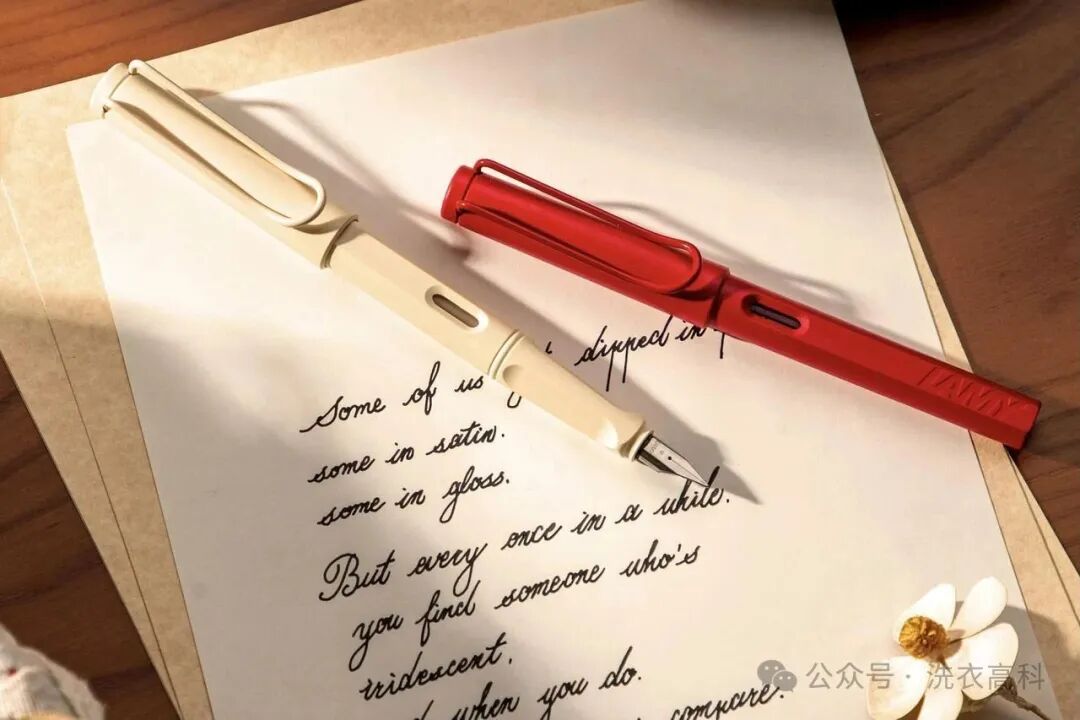 LAMY
Some of us dipped in
some in satin.
some in gloss.
But every once in a while.
you find someone who's
iridescent.
when you do.
compare.
公众号 · 洗衣高科